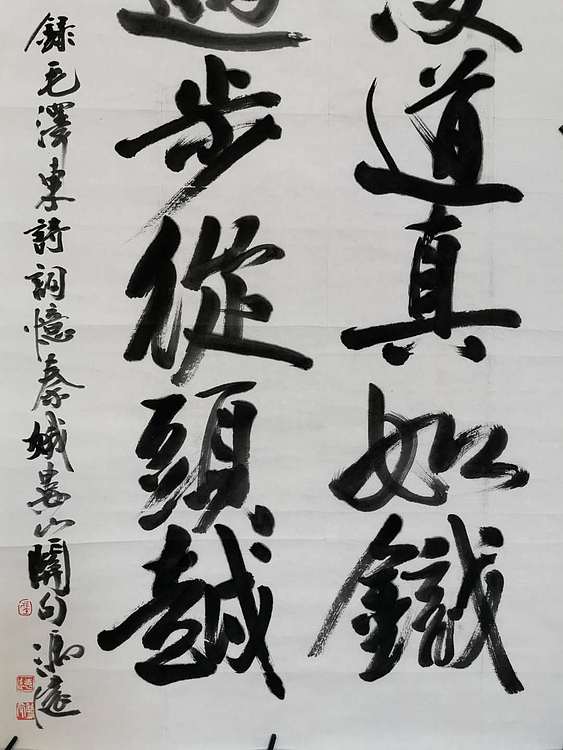 道真如鐵
步從頭越
錄毛澤東詩詞憶秦娥婁山關句